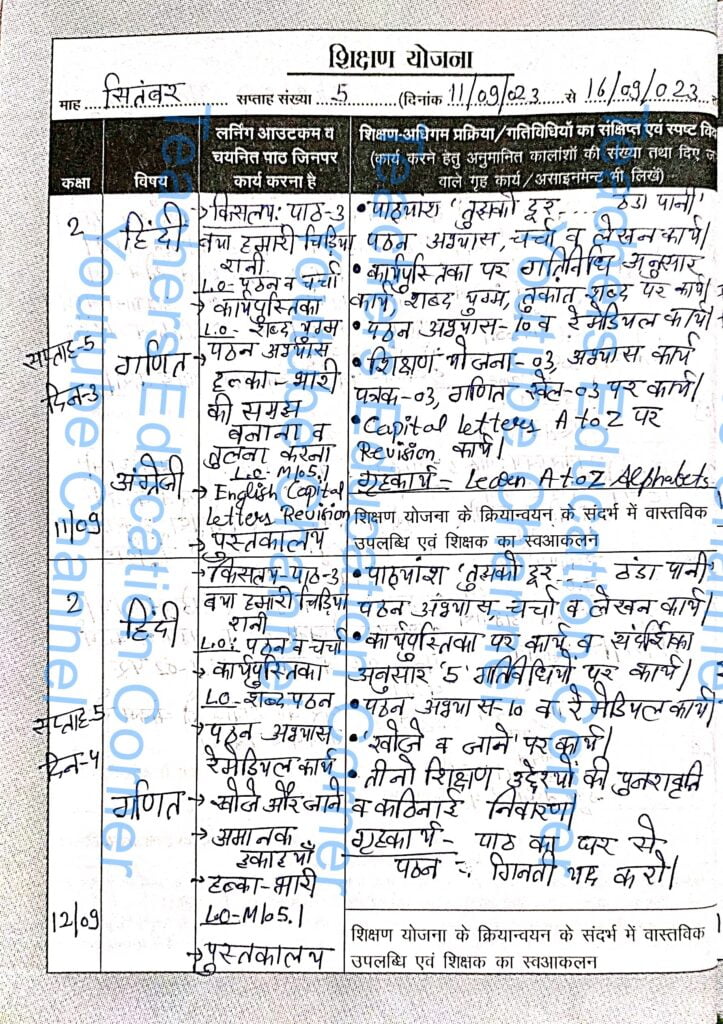 शिक्षण योजना
माह सितंबर सप्ताह संख्या 5 (दिनांक 11/09/023 से 16/09/023
कक्षा
विषय
लर्निंग आउटकम व
चयनित पाठ जिनपर
कार्य करना है
शिक्षण-अधिगम प्रक्रिया/गतिविधियों का संक्षिप्त एवं स्पष्ट वि
(कार्य करने हेतु अनुमानित कालांशों की संख्या तथा दिए ज
वाले गृह कार्य/असाइनमेन्ट भी लिखें)
2
सप्ताह-5
दिन-3
11/09
हिंदी
गणित
अंग्रेजी
→ किसलय: पाठ-3
बया हमारी चिड़िया
रानी
L.O- पठन व चर्चा
→ कार्यपुस्तिका
L.O:- शब्द युग्म
→ पठन अभ्यास
हल्का-भारी
की समझ
बनाना व
तुलना करना
L.O-M105.1
→ English Capital
Letters Revision
→ पुस्तकालय
• पाठ्यांश 'तुझको दूर.... ठंडा पानी'
पठन अभ्यास, चर्चा व लेखन कार्य।
• कार्यपुस्तिका पर गतिविधि अनुसार
कार्य, शब्द युग्म, तुकांत शब्द पर कार्य।
• पठन अभ्यास-10 व रेमेडियल कार्य।
• शिक्षण योजना-03, अभ्यास कार्य
पत्रक-03, गणित खेल-03 पर कार्य।
• Capital letters A to Z पर
Revision कार्य।
गृहकार्य - Learn A to Z Alphabets
शिक्षण योजना के क्रियान्वयन के संदर्भ में वास्तविक
उपलब्धि एवं शिक्षक का स्वआकलन
2
सप्ताह-5
दिन-4
12/09
हिंदी
गणित
→ किसलय-पाठ-3
बया हमारी चिड़िया
रानी
L.O: पठन व चर्चा
→ कार्यपुस्तिका
LO-शब्द पठन
→ पठन अभ्यास
रेमेडियल कार्य
→ खोजे और जाने
→ अमानक
इकाइयाँ
→ हल्का-भारी
LO-M105.1
→ पुस्तकालय
• पाठ्यांश 'तुझको दूर.... ठंडा पानी'
पठन अभ्यास चर्चा व लेखन कार्य।
• कार्यपुस्तिका पर कार्य व संदर्शिका
अनुसार '5' गतिविधियों पर कार्य।
• पठन अभ्यास-10 व रेमेडियल कार्य
• 'खोजे व जाने' पर कार्य।
• तीनो शिक्षण उद्देश्यों की पुनरावृति
व कठिनाई निवारण।
गृहकार्य - पाठ का घर से
पठन - गिनती याद करो।
शिक्षण योजना के क्रियान्वयन के संदर्भ में वास्तविक
उपलब्धि एवं शिक्षक का स्वआकलन
Teachers Education Corner
Youtube Channel
Teachers Education Corner
Youtube Channel